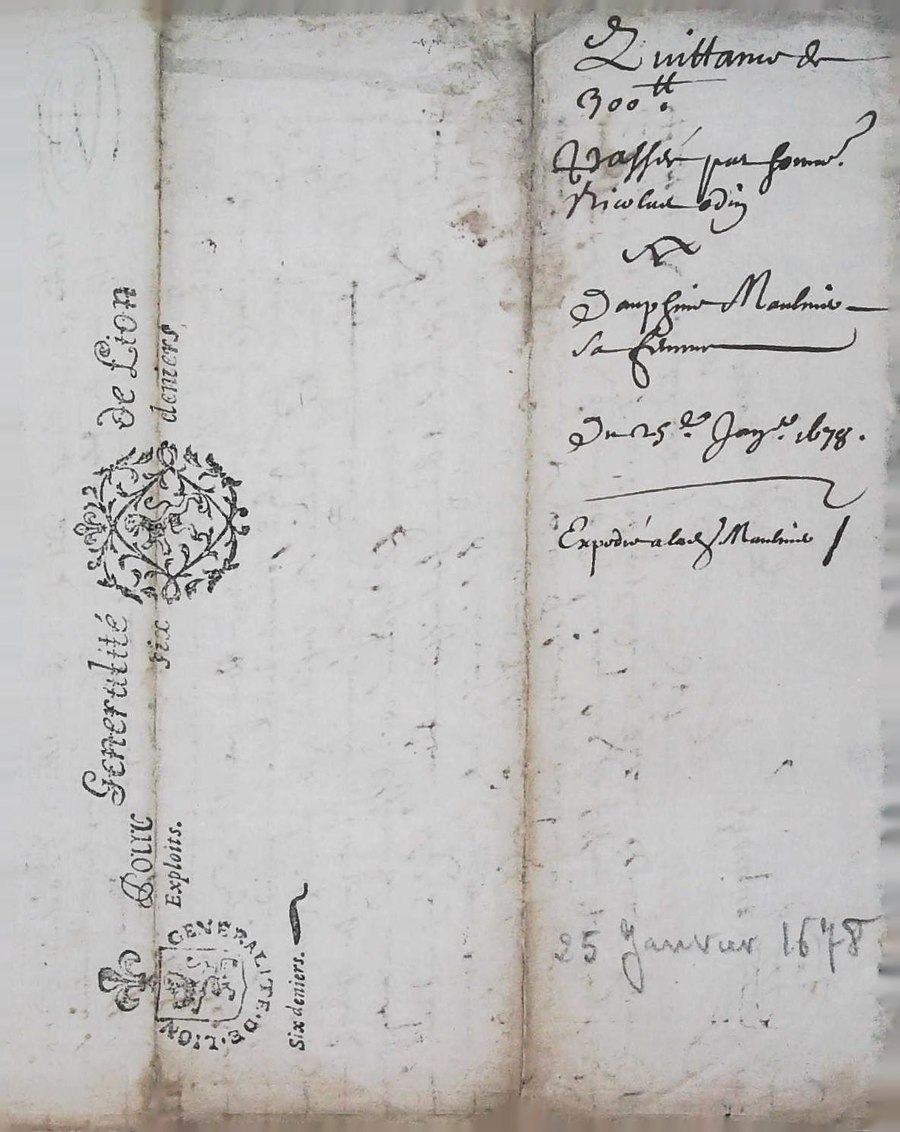 Quittance de
300 ₶
Passée par honne.
Nicolas odin
Et
Dauphine Maulnie
sa femme
Du 25e Janver 1678.
Expedié a lad Maulnie
25 Janvier 1678
Generalité de Lion
six deniers
Pour
Exploits.
GENERALITE·DE·LION
Six deniers.